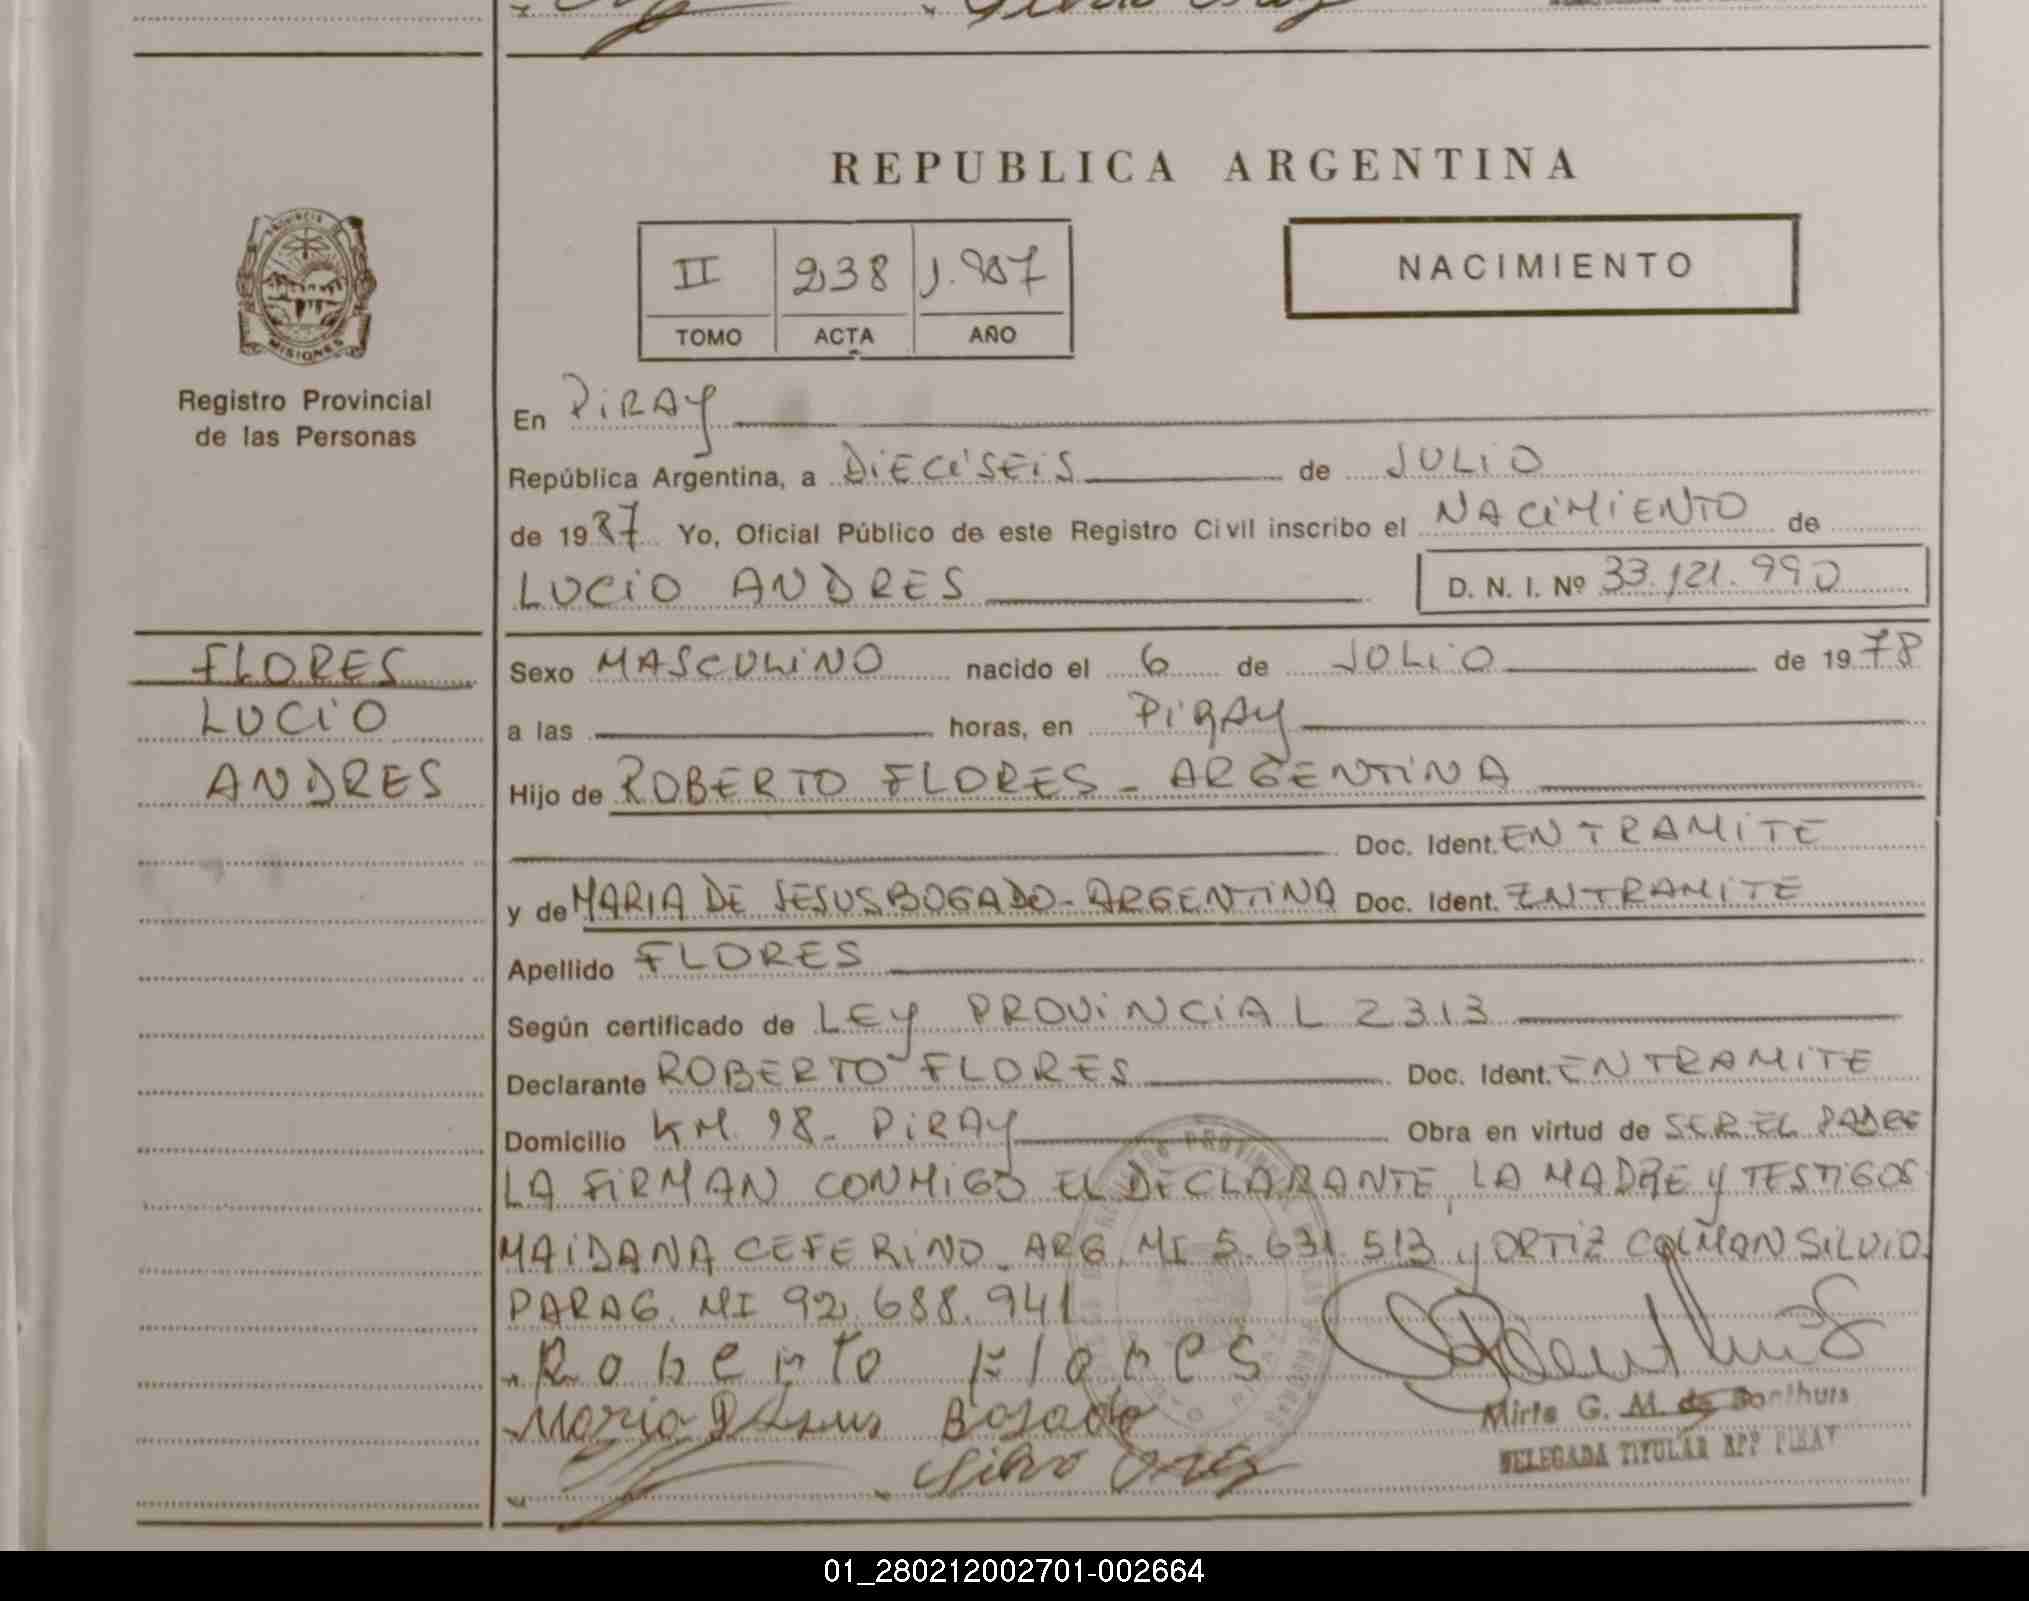 REPUBLICA ARGENTINA
II 238 1.987
TOMO ACTA AÑO
NACIMIENTO
PROVINCIA
MISIONES
Registro Provincial
de las Personas
En PIRAY
República Argentina, a DIECISEIS de JULIO
de 1987 Yo, Oficial Público de este Registro Civil inscribo el NACIMIENTO de
LUCIO ANDRES D. N. I. Nº 33.121.990
FLORES
LUCIO
ANDRES
Sexo MASCULINO nacido el 6 de JULIO de 1978
a las horas, en PIRAY
Hijo de ROBERTO FLORES - ARGENTINA
Doc. Ident. EN TRAMITE
y de MARIA DE JESUS BOGADO - ARGENTINA Doc. Ident. EN TRAMITE
Apellido FLORES
Según certificado de LEY PROVINCIAL 2313
Declarante ROBERTO FLORES Doc. Ident. EN TRAMITE
Domicilio KM. 18 - PIRAY Obra en virtud de SER EL PADRE
LA FIRMAN CONMIGO EL DECLARANTE, LA MADRE Y TESTIGOS
MAIDANA CEFERINO - ARG. MI 5.631.513 y ORTIZ COLMAN SILVIO
PARAG. MI 92.688.941
Roberto Flores
Maria D Jesus Bogado
Silvio Ortiz
Mirta G. M. de Bonthuis
DELEGADA TITULAR RPP PIRAY
01_280212002701-002664